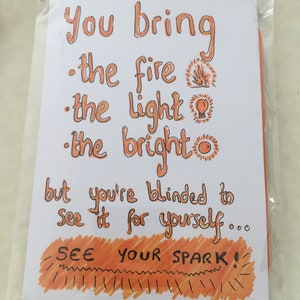 you bring
· the fire
· the light
· the bright
but you're blinded to
see it for yourself...
SEE YOUR SPARK!